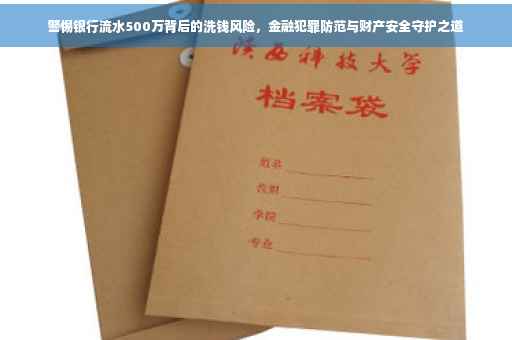 警惕银行流水500万背后的洗钱风险，金融犯罪防范与财产安全守护之道
陕西科技大学
档案袋
学院
专业